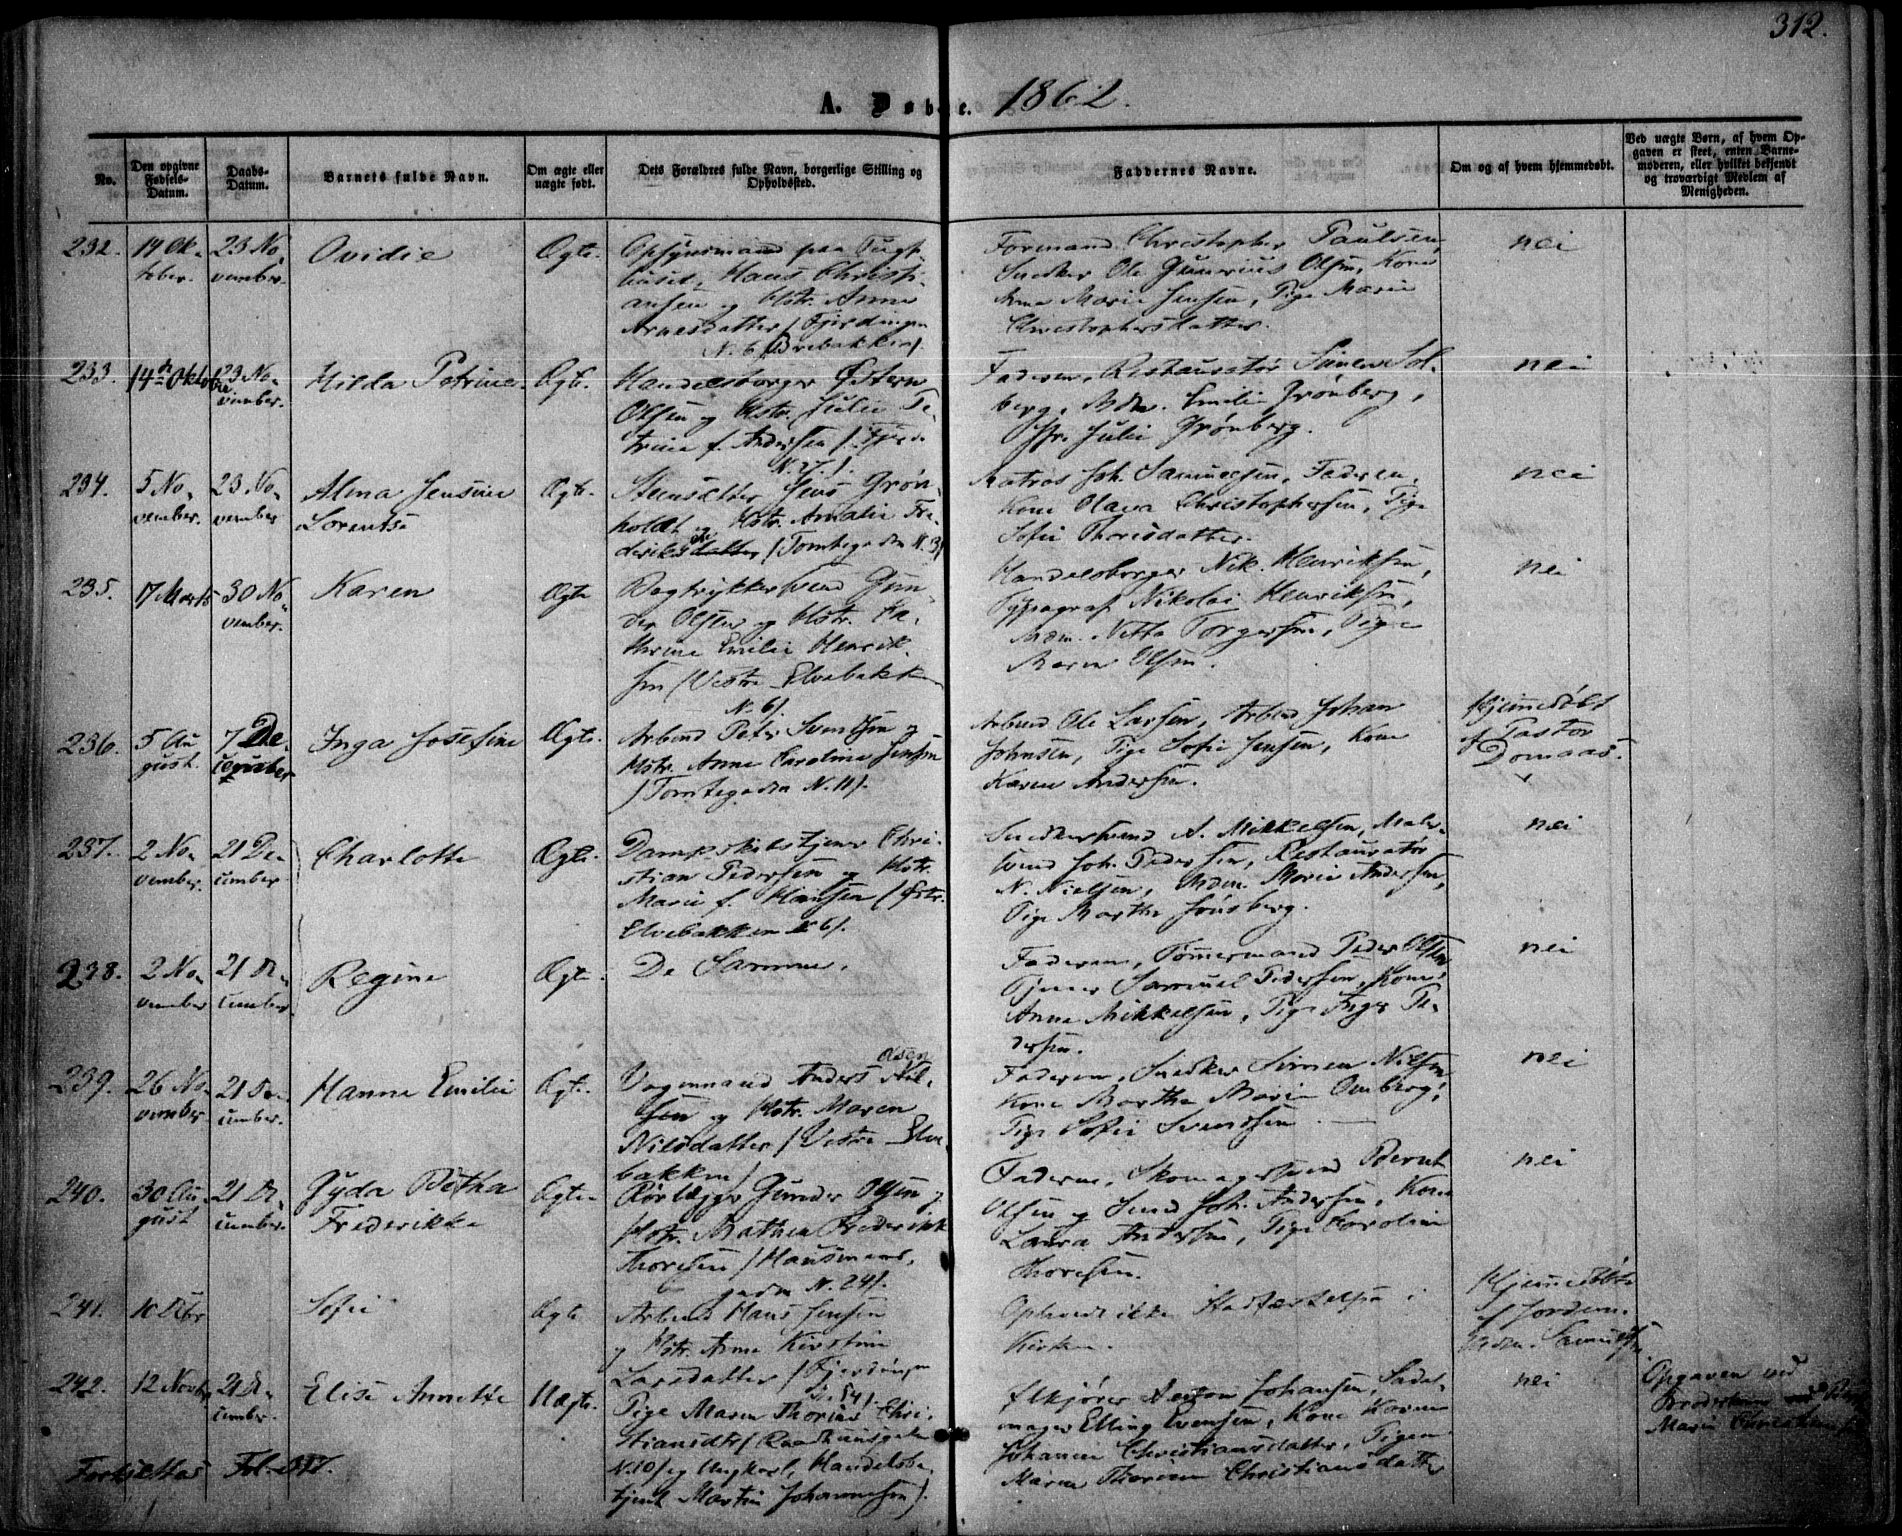 312.
A. Døbte. 1862.
No.
Den opgivne
Fødsels-
Datum.
Daabs-
Datum.
Barnets fulde Navn.
Om ægte eller
uægte født.
Dets Forældres fulde Navn, borgerlige Stilling og
Opholdssted.
Faddernes Navne.
Om og af hvem hjemmedøbt.
Ved uægte Børn, af hvem Op-
gaven er skeet, enten Barne-
moderen, eller hvilket bekjendt
og troværdigt Medlem af
Menigheden.
232.
19 Ok-
tober.
23 No-
vember.
Ovidie
Ægte.
Opsynsmand paa Tugt-
huset, Hans Christi-
ansen og Hstr. Anne
Arnesdatter / Fjerdingen
N. 6, Brebakken /.
Formand Christopher Paulsen,
Snedker Ole Gunerius Olsen, Kone
Anne Marie Jensen, Pige Marie
Christophersdatter.
nei
233.
14de Oktober
23 No-
vember.
Hilda Petrine.
Ægte.
Handelsborger Østern
Olsen og Hstr. Julie Pe-
trine f. Andersen / Fjerd.
N. 27. /.
Faderen, Restauratør Simen Sol-
berg, Mdm. Emilie Grønberg,
Jfr. Julie Grønberg.
nei
234.
5 No-
vember.
23 No-
vember
Alma Jensine
Lorentse
Ægte.
Steensætter Jens Grøn-
holdt og Hstr. Amalie Fre-
deriksdatter / Tomtegaden N. 3 /
Matros Joh. Samuelsen, Faderen,
Kone Olava Christophersen, Pige
Sofie Thorisdatter.
nei
235.
17 Marts
30 No-
vember.
Karen
Ægte
Bogtrykkersvend Gun-
der Olsen og Hstr. Ka-
thrine Emilie Henrik-
sen / Vestre Elvebakken
N. 6 /.
Handelsborger Nik. Henriksen,
Typograf Nikolai Henriksen,
Mdm. Netta Torgersen, Pige
Maren Olsen.
nei
236.
5 Au-
gust.
7 De-
cember
Inga Josefine
Ægte.
Arbmd Peter Svendsen og
Hstr. Anne Caroline Jensen
/ Tomtegaden N. 11 /.
Arbmd Ole Larsen, Arbmd Johan
Johnsen, Pige Sofie Jensen, Kone
Karen Andersen.
Hjemmedøbt
af Pastor
Domaas.
237.
2 No-
vember.
21 De-
cember
Charlotte
Ægte.
Dampskibstjener Chri-
stian Pedersen og Hstr.
Marie f. Hansen / Østr.
Elvebakken N 6 /.
Snedkersvend A. Mikkelsen, Maler-
svend Joh. Pedersen, Restauratør
N. Nielsen, Mdm. Marie Andersen,
Pige Marthe Jonsberg.
nei
238.
2 No-
vember
21 De-
cember.
Regine
Ægte.
De Samme.
Faderen, Tømmermand Peder Olsen
Tjener Samuel Pedersen, Kone
Anne Mikkelsen, Pige Inger Pe-
dersen.
nei
239.
26 No-
vember
21 De-
cember.
Hanna Emilie
Ægte.
Vognmand Anders Nil-
sen og Hstr. Maren
Olsen
Nilsdatter / Vestre Elve-
bakken /
Faderen, Snedker Simen Nilsen
Kone Marthe Marie Omberg,
Pige Sofie Svendsen.
nei
240.
30 Au-
gust
21 De-
cember.
Gyda Betha
Frederikke
Ægte
Rørlægger Gunder Olsen og
Hstr. Mathea Frederikke
Thoresen / Hausmans-
gaden N. 24 /.
Faderen, Skomagersvend Bernt
Olsen og Smed Joh. Andersen, Kone
Laura Andersen, Pige Karoline
Thoresen.
nei
241.
10 Dcbr
Sofie
Ægte
Arbmd Hans Jensen
og Hstr. Anne Kirstine
Larsdatter / Fjerdingen
N. 54 /.
Oplevede ikke Stadfæstelsen i
Kirken.
Hjemmedøbt
af Jordem.
Mdm. Samuelsen
242.
12 Novbr
21 De-
cember.
Elise Annette
Uægte.
Pige Maren Thorine Chri-
stiansdtr / Raadhusgaden
N. 10 / og Ungkarl, Handelsbe-
tjent Martin Johannesen /.
Johansen, Sadel-
mager Elling Evensen, Kone Karen
Johanne Christiansdatter, Pigen
Maren Thorine Christiansdatter
nei
Opgaven ved
Marie Christiansen
Fortsættes Fol. 317.